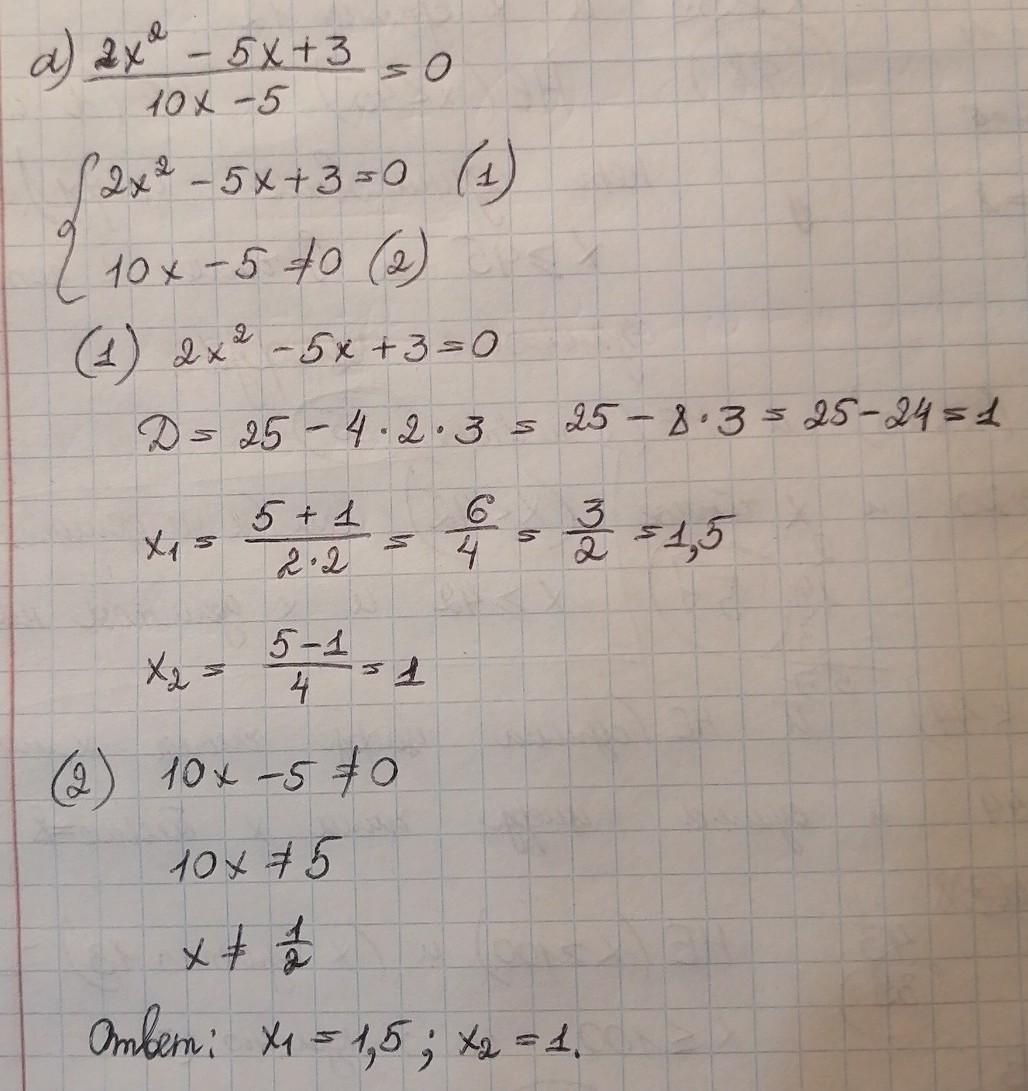 а) (2x² - 5x + 3)/(10x - 5) = 0
{ 2x² - 5x + 3 = 0 (1)
10x - 5 ≠ 0 (2)
(1) 2x² - 5x + 3 = 0
D = 25 - 4 · 2 · 3 = 25 - 8 · 3 = 25 - 24 = 1
x₁ = (5 + 1)/(2·2) = 6/4 = 3/2 = 1,5
x₂ = (5 - 1)/4 = 1
(2) 10x - 5 ≠ 0
10x ≠ 5
x ≠ 1/2
Ответ: x₁ = 1,5 ; x₂ = 1.